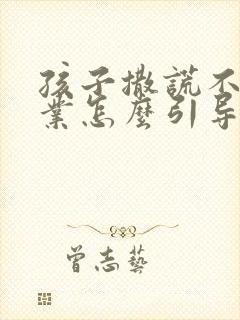 孩子撒謊不
業怎麼引导
曾志藝